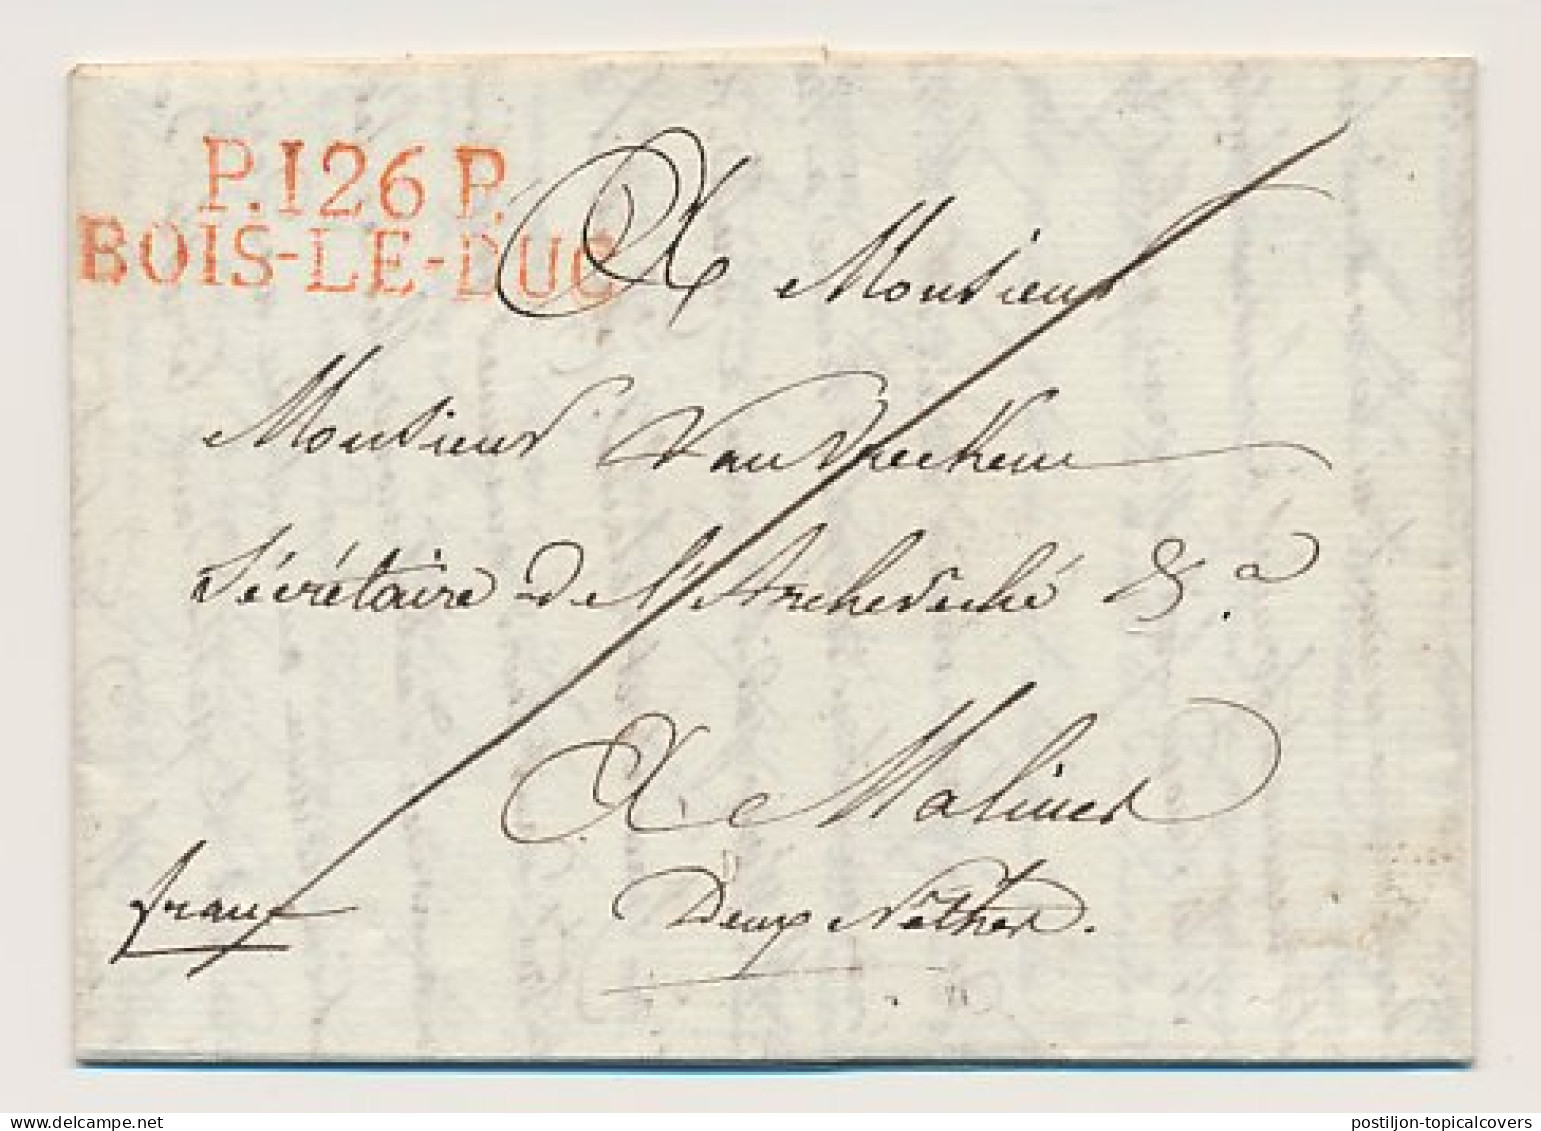 P.126 P.
BOIS-LE-DUC
A Monsieur
Monsieur Van
Sécrétaire de l'Archevêché &.a
A Malines
Deux Nethes.
franc
delcampe.net
postiljon-topicalcovers